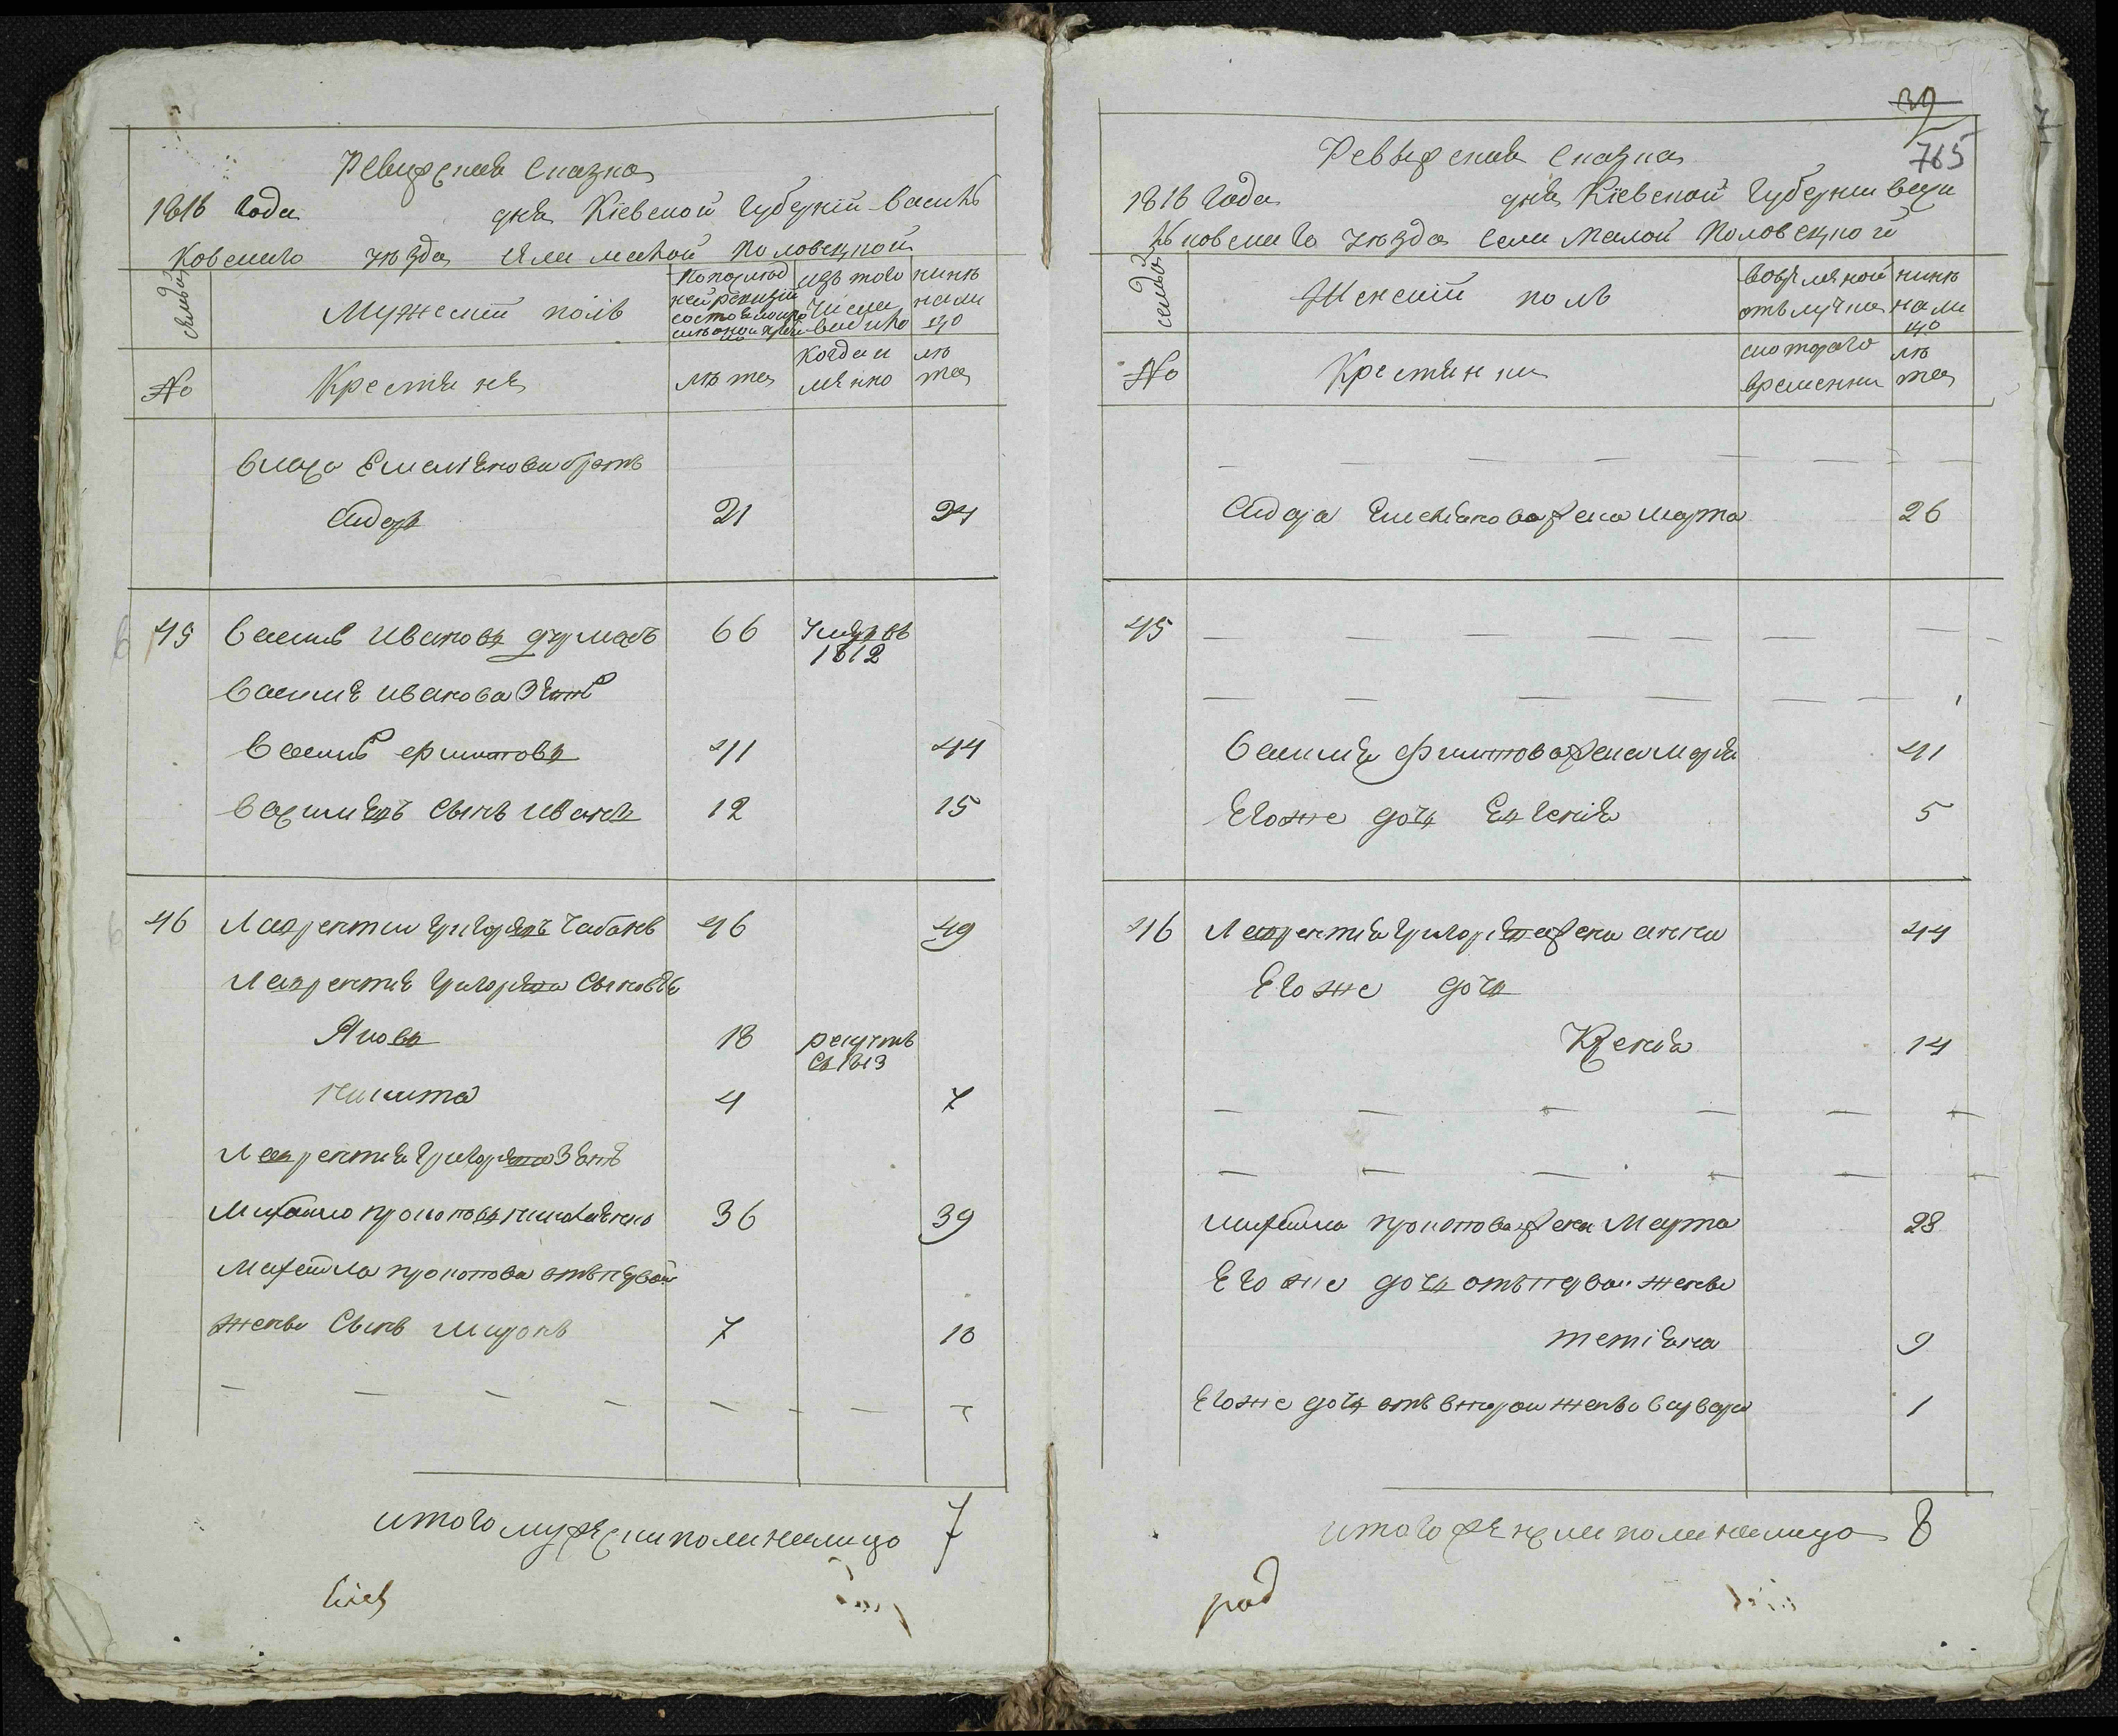 Ревизская Сказка
1816 года дня Кіевской Губерніи Василь
ковского уезда села малой половецкой
семьи Мужеский полъ По последней ревизіи состояло и после оной прибыло изъ того числа выбыло ныне на лицо
No Крестьяне лета когда именно лета
Власа Емельянова братъ
Сидоръ 21 24
45 Василь Ивановъ 66 Умеръ въ
1812
Василия Иванова зять
Василь Филиповъ 41 44
Васильевъ Сынъ Иванъ 12 15
46 Лаврентий Григорьевъ Чабанъ 46 49
Лаврентия Григорьева Сыновья
Яковъ 18 рекрутъ
въ 1813
Никита 4 7
Лаврентия Григорьева Зять
Михайло прокоповъ 36 39
Михайла прокопова отъ первой
жены Сынъ Миронъ 7 10
итого мужеска пола налицо 7
39
765
Ревизская Сказка
1816 Года дня Кіевской Губернии Васи
льковского уезда села Малой Половецкой
семьи Женский полъ во временной отлучке ныне на лицо
No Крестьянки с которого времени лета
Сидора Емельянова жена Марта 26
45
Василия Филипова жена Мария 41
Его же дочь Евгения 5
46 Лаврентия Григорьева жена Анна 44
Его же дочь
Ксения 14
михайла прокопова жена Марта 28
Его же дочь отъ первой жены
тетіяна 9
Его же дочь отъ второй жены Варвара 1
итого женска пола налицо 8